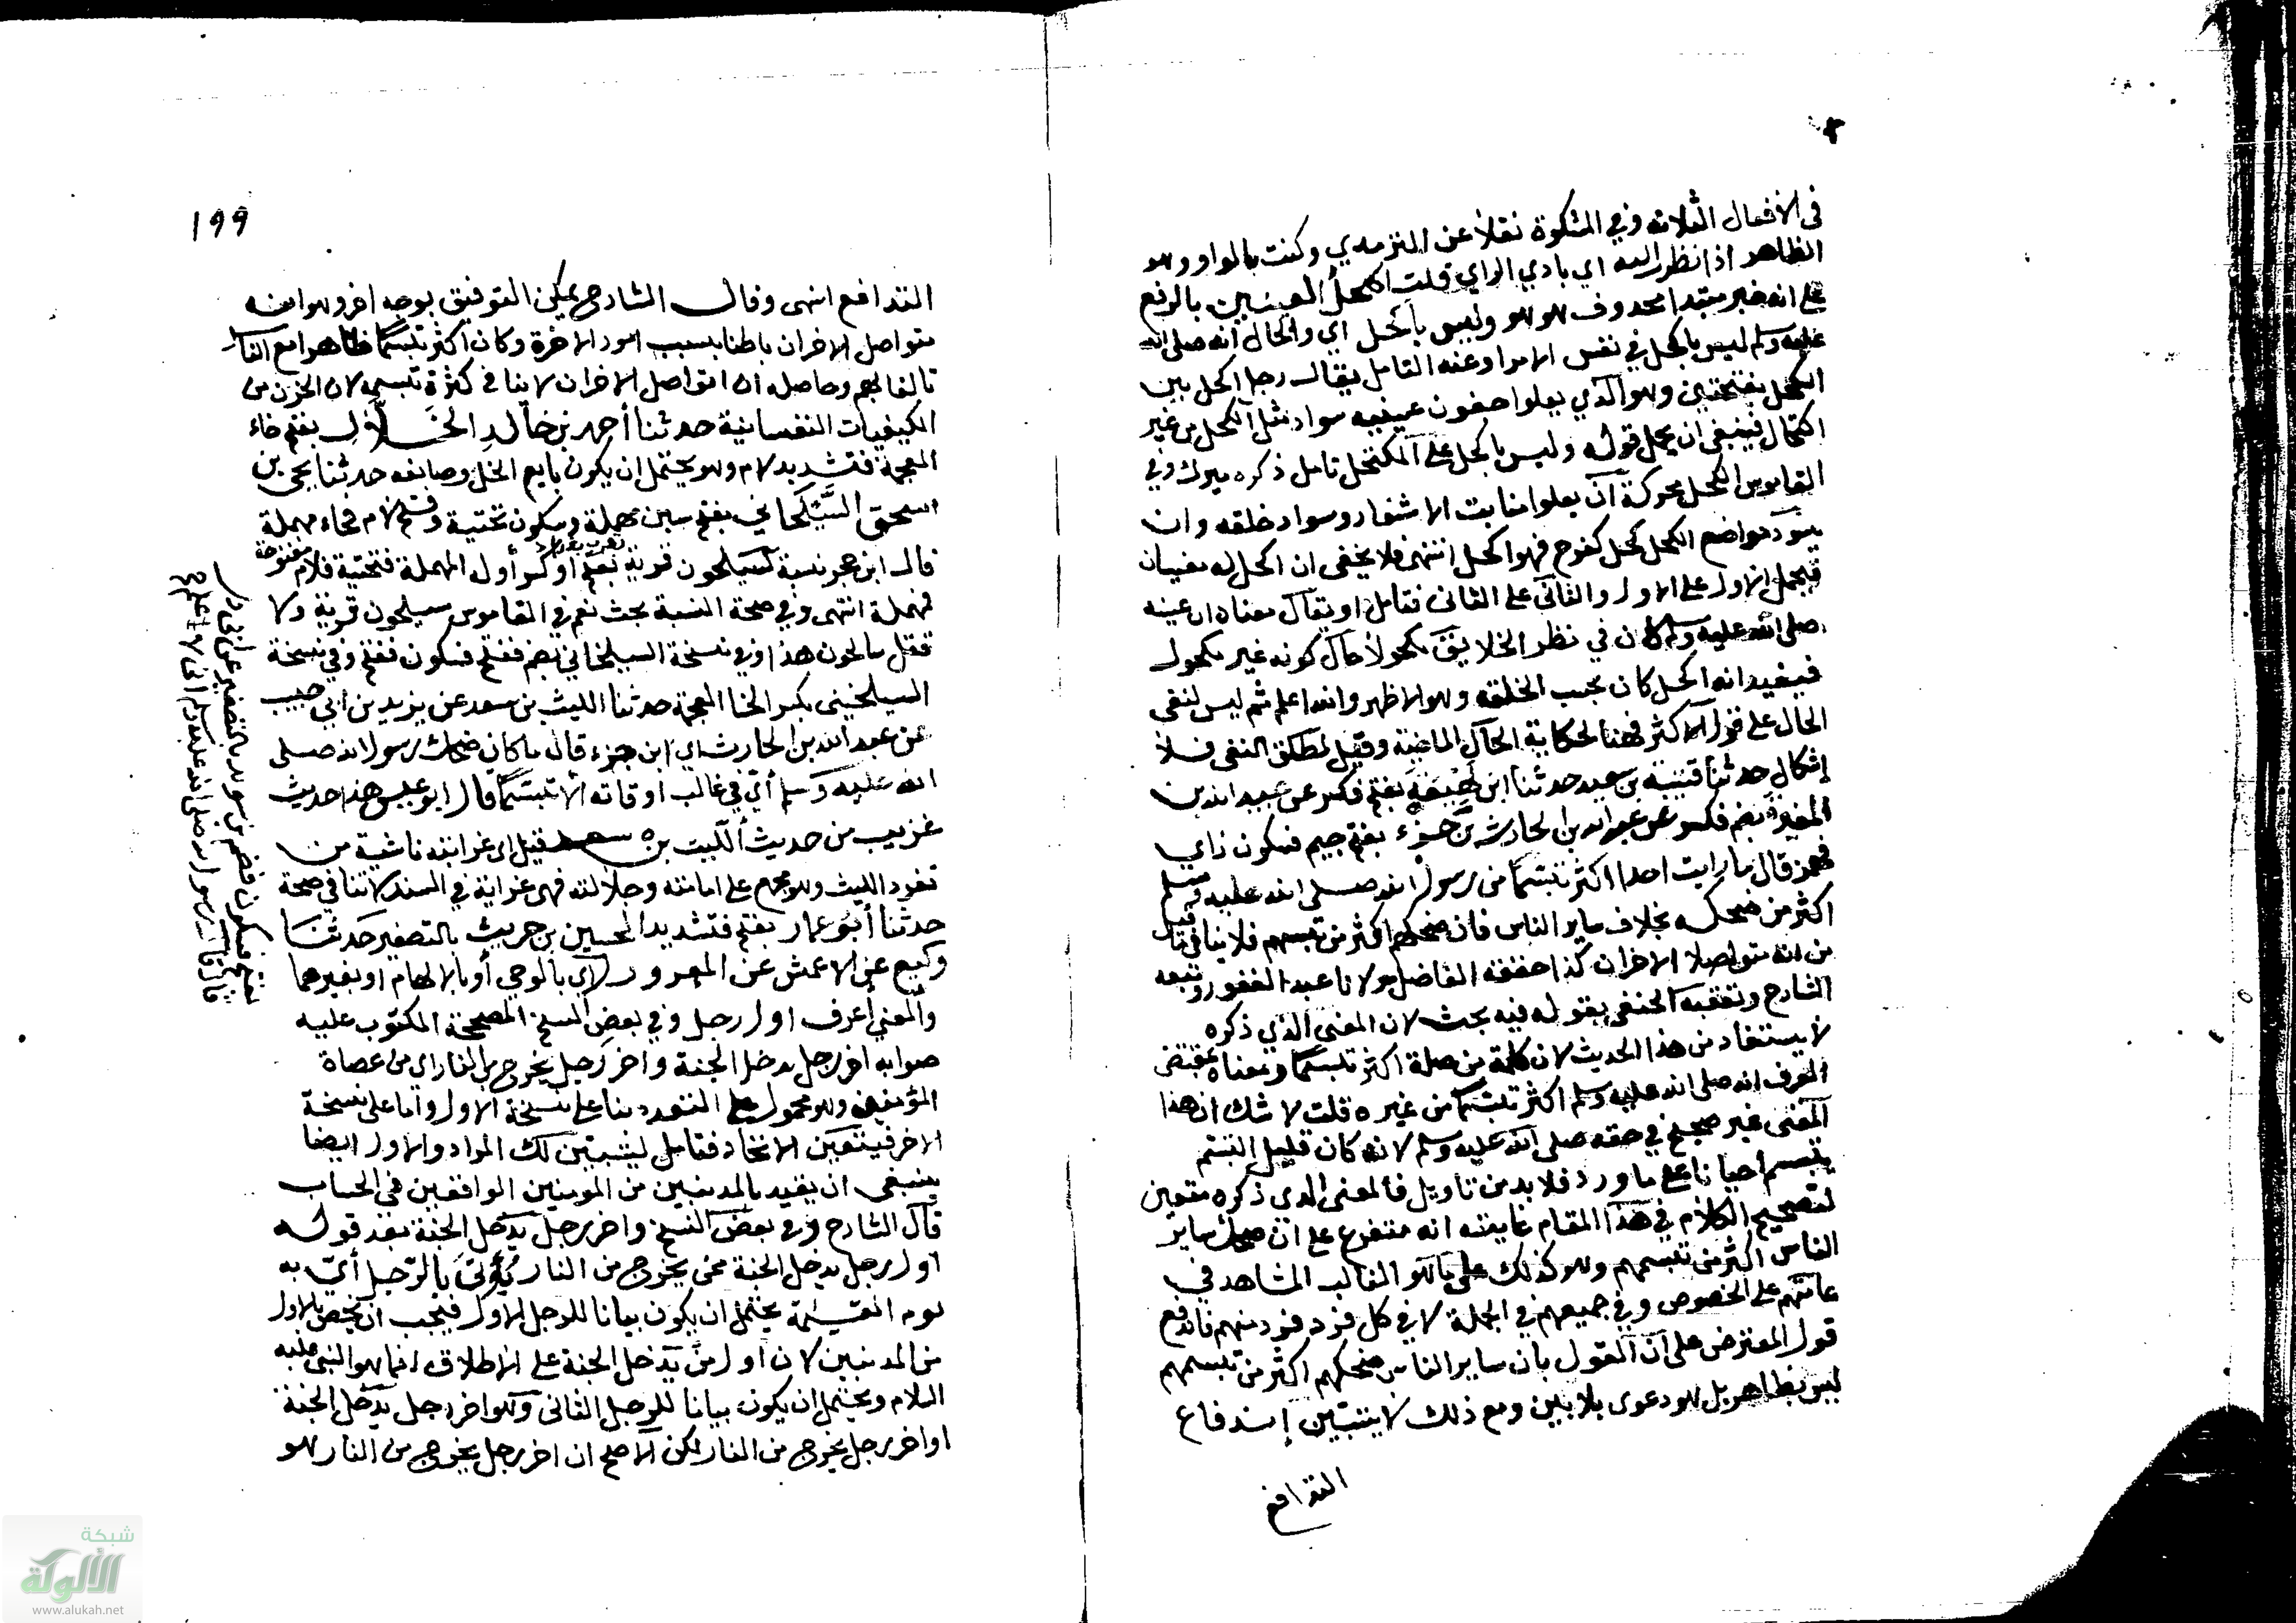 في الأفعال الثلاثه وفي المشكوة نقلا عن الترمذي وكنت بالواو وهو
الظاهر اذا نظرت اليه اي بادي الراي قلت اكحل العينين بالرفع
على انه خبر مبتدا محذوف هو هو وليس باكحل اي والحال انه صلى الله
عليه وسلم ليس باكحل في نفس الامر وعند التامل يقال رجل اكحل بين
الكحل بفتحتين وهو الذي يعلو جفون عينيه سواد مثل الكحل من غير
اكتحال فينبغي ان يحمل قوله وليس باكحل على المكتحل تامل ذكره ميرك وفي
القاموس الكحل محركة ان يعلو منابت الاشفار وسواد خلقه وان
يسود مواضع الكحل كحل كفرح فهو اكحل انتهى فلا يخفى ان اكحل له معنيان
فيحمل الاول على الاول والثاني على الثاني فتامل او يقال معناه ان عينه
صلى الله عليه وسلم كان في نظر الخلايق مكحولا حال كونه غير مكحول
فيفيد انه اكحل كان بحسب الخلقه وهو الاظهر والله اعلم ثم ليس لنفي
الحال على قول الاكثر فهنا لحكاية الحال الماضية وقيل لمطلق النفي فلا
إشكال حدثنا قتيبة بن سعيد حدثنا ابن لهيعة بفتح فكسر عن عبيد الله بن
المغيرة بضم فكسر عن عبد الله بن الحارث بن جزء بفتح جيم فسكون زاي
فهمز قال ما رايت احدا اكثر تبسما من رسول الله صلى الله عليه وسلم
اكثر من ضحكه بخلاف ساير الناس فان ضحكهم اكثر من تبسمهم فلا ينافي ما قيل
من انه متواصلا الاخزان كذا حققه الفاضل مولانا عبد الغفور وتبعه
الشارح وتعقبه الحنفي بقوله فيه بحث لان المعنى الذي ذكره
لا يستفاد من هذا الحديث لان كلمة من صلة اكثر تبسما ومعناه بمقتضى
العرف انه صلى الله عليه وسلم اكثر تبسما من غيره قلت لا شك ان هذا
المعنى غير صحيح في حقه صلى الله عليه وسلم لانه كان قليل التبسم
يتبسم أحيانا على ما ورد فلا بد من تاويل فالمعنى الذي ذكره متعين
لتصحيح الكلام في هذا المقام غايته انه متفرع على ان ضحك ساير
الناس اكثر من تبسمهم وهو كذلك على ما هو الغالب المشاهد في
عامتهم على الخصوص وفي جميعهم في الجملة لا في كل فرد فرد منهم فاندفع
قول المعترض على ان القول بان ساير الناس ضحكهم اكثر من تبسمهم
ليس بظاهر بل هو دعوى بلا بين ومع ذلك لا يتبين إندفاع
التدافع
199
التدافع انتهى وقال الشارح يمكن التوفيق بوجه اخر وهو انه
متواصل الاخزان باطنا بسبب امور الاخرة وكان اكثر تبسما ظاهرا مع الناس
تالفا لهم وحاصله ان تواصل الاخزان لا ينافي كثرة تبسمه لان الحزن من
الكيفيات النفسانية حدثنا أحمد بن خالد الخلال بفتح خاء
المعجمة فتشديد لام وهو يحتمل ان يكون بايع الخل وصانعه حدثنا يحيى بن
اسحق السَّيْلَحاني بفتح سين مهملة وسكون تحتية وفتح لام فحاء مهملة
قال ابن حجر نسبة لسيلحون قرية بقرب بغداد بفتح أو كسر أول المهملة فتحتية فلام مفتوحة
فمهملة انتهى وفي صحة النسبة بحث نعم في القاموس سيلحون قرية ولا
تقل سالحون هذا وفي نسخة السيلحاني بضم ففتح فسكون ففتح وفي نسخة
السيلخيني بكسر الخا المعجمة حدثنا الليث بن سعد عن يزيد بن ابي حبيب
عن عبد الله بن الحارث اي ابن جزء قال ما كان ضحك رسول الله صلى
الله عليه وسلم أي في غالب اوقاته الا تبسما قال ابو عيسى هذا حديث
غريب من حديث الليث بن سعد قيل اي غرابته ناشية من
تفرد الليث وهو مجمع على امامته وجلالته فهي غرابة في السند لا تنافي صحة
حدثنا أبو عمار بفتح فتشديد الحسين بن حريث بالتصغير حدثنا
وكيع عن الاعمش عن المعرور اي بالوحي أو بالالهام او بغيرهما
والمعنى أعرف اول رجل وفي بعض النسخ المصححة المكتوب عليه
صوابه اخر رجل يدخل الجنة واخر رجل يخرج من النار اي من عصاة
المؤمنين وهو محمول على التعدد بنا على نسخة الاول وأما على نسخة
الاخر فيتعين الاتحاد فتامل ليتبين لك المراد والاول ايضا
ينبغي ان يقيد بالمذنبين من المومنين الواقفين في الحساب
قال الشارح وفي بعض النسخ واخر رجل يدخل الجنة بعد قوله
اول رجل يدخل الجنة ممن يخرج من النار يُؤتى بالرجل أي به
يوم القيمة يحتمل ان يكون بيانا للرجل الاول فيجب ان يخص بالاول
من المذنبين لان اول من يدخل الجنة على الاطلاق انما هو النبي عليه
السلام ويحتمل ان يكون بيانا للرجل الثاني وهو اخر رجل يدخل الجنة
او اخر رجل يخرج من النار لكن الاصح ان اخر رجل يخرج من النار هو
بفتح فسكون فضم بن سويد بالتصغير عن ابي ذر
قال قال رسول الله صلى الله عليه وسلم اني لاعلم
شبكة
الألوكة
www.alukah.net